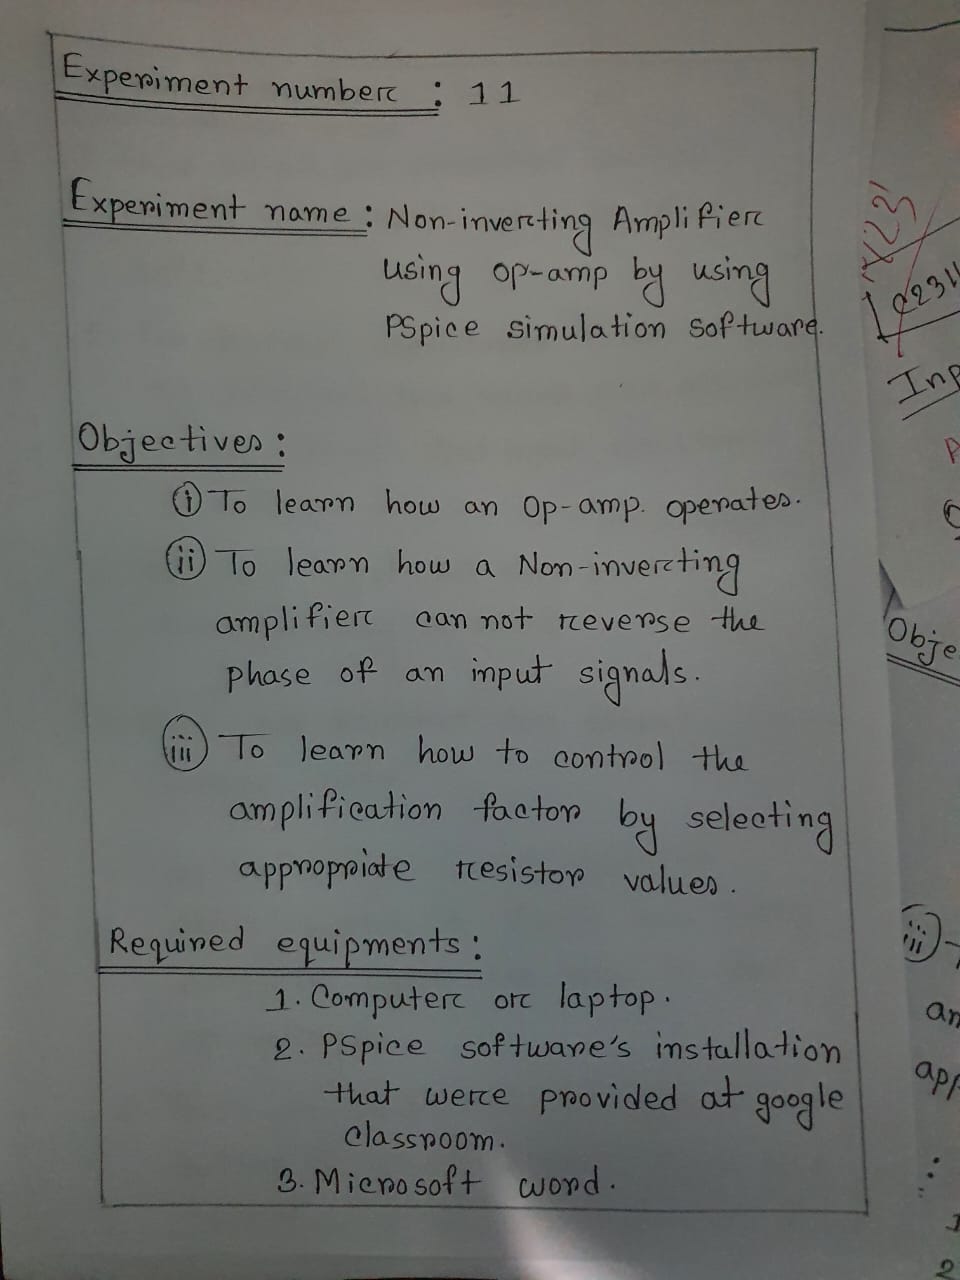 Experiment number : 11
Experiment name : Non-inverting Amplifier
using op-amp by using
PSpice simulation software.
Objectives :
(i) To learn how an Op-amp. operates.
(ii) To learn how a Non-inverting
amplifier can not reverse the
phase of an input signals.
(iii) To learn how to control the
amplification factor by selecting
appropriate resistor values.
Required equipments :
1. Computer or laptop.
2. PSpice software's installation
that were provided at google
classroom.
3. Microsoft word.
Inp
Obje
(iii)
an
app
1
2